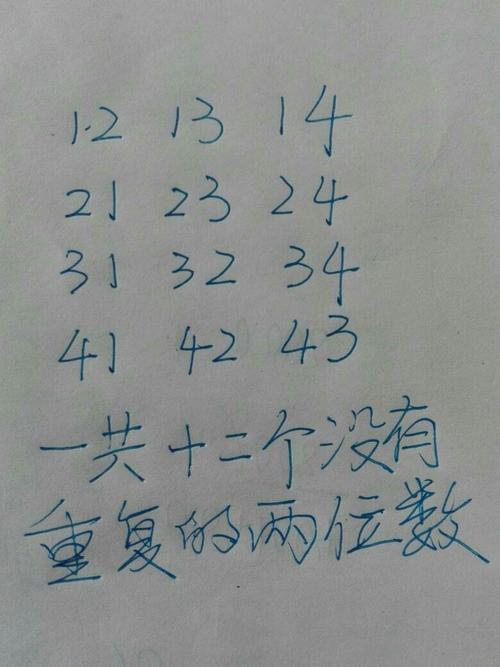 12 13 14
21 23 24
31 32 34
41 42 43
一共十二个没有
重复的两位数